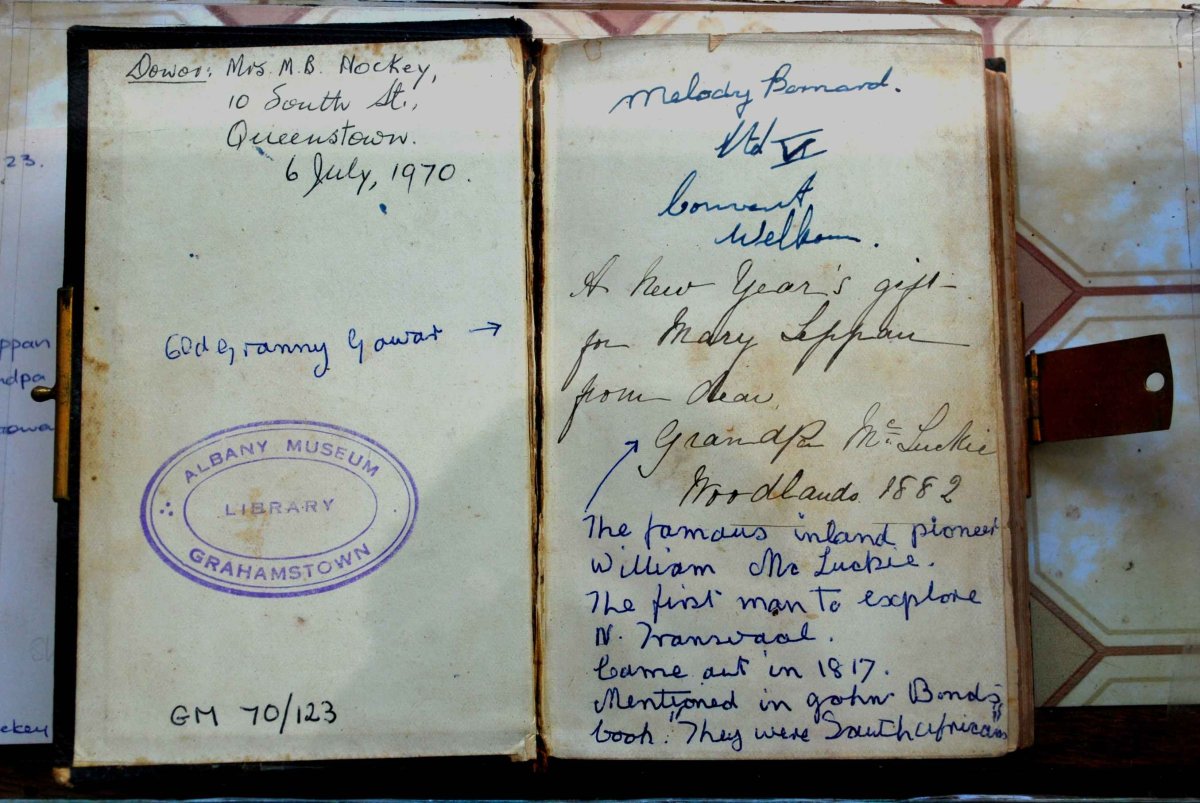 Donor: Mrs. M.B. Hockey,
10 South St.,
Queenstown.
6 July, 1970.
Granny Gowar →
ALBANY MUSEUM
LIBRARY
GRAHAMSTOWN
GM 70/123
Melody Barnard.
Std VI
Convent
Welkom.
A New Year's gift
for Mary Leppan
from dear
Grandpa Mc Luckie
Woodlands 1882
The famous inland pioneer
William Mc Luckie.
The first man to explore
N. Transvaal.
Came out in 1817.
Mentioned in John Bonds
book "They were South Africans"
23.
ppan
ndpa
owa
ckey